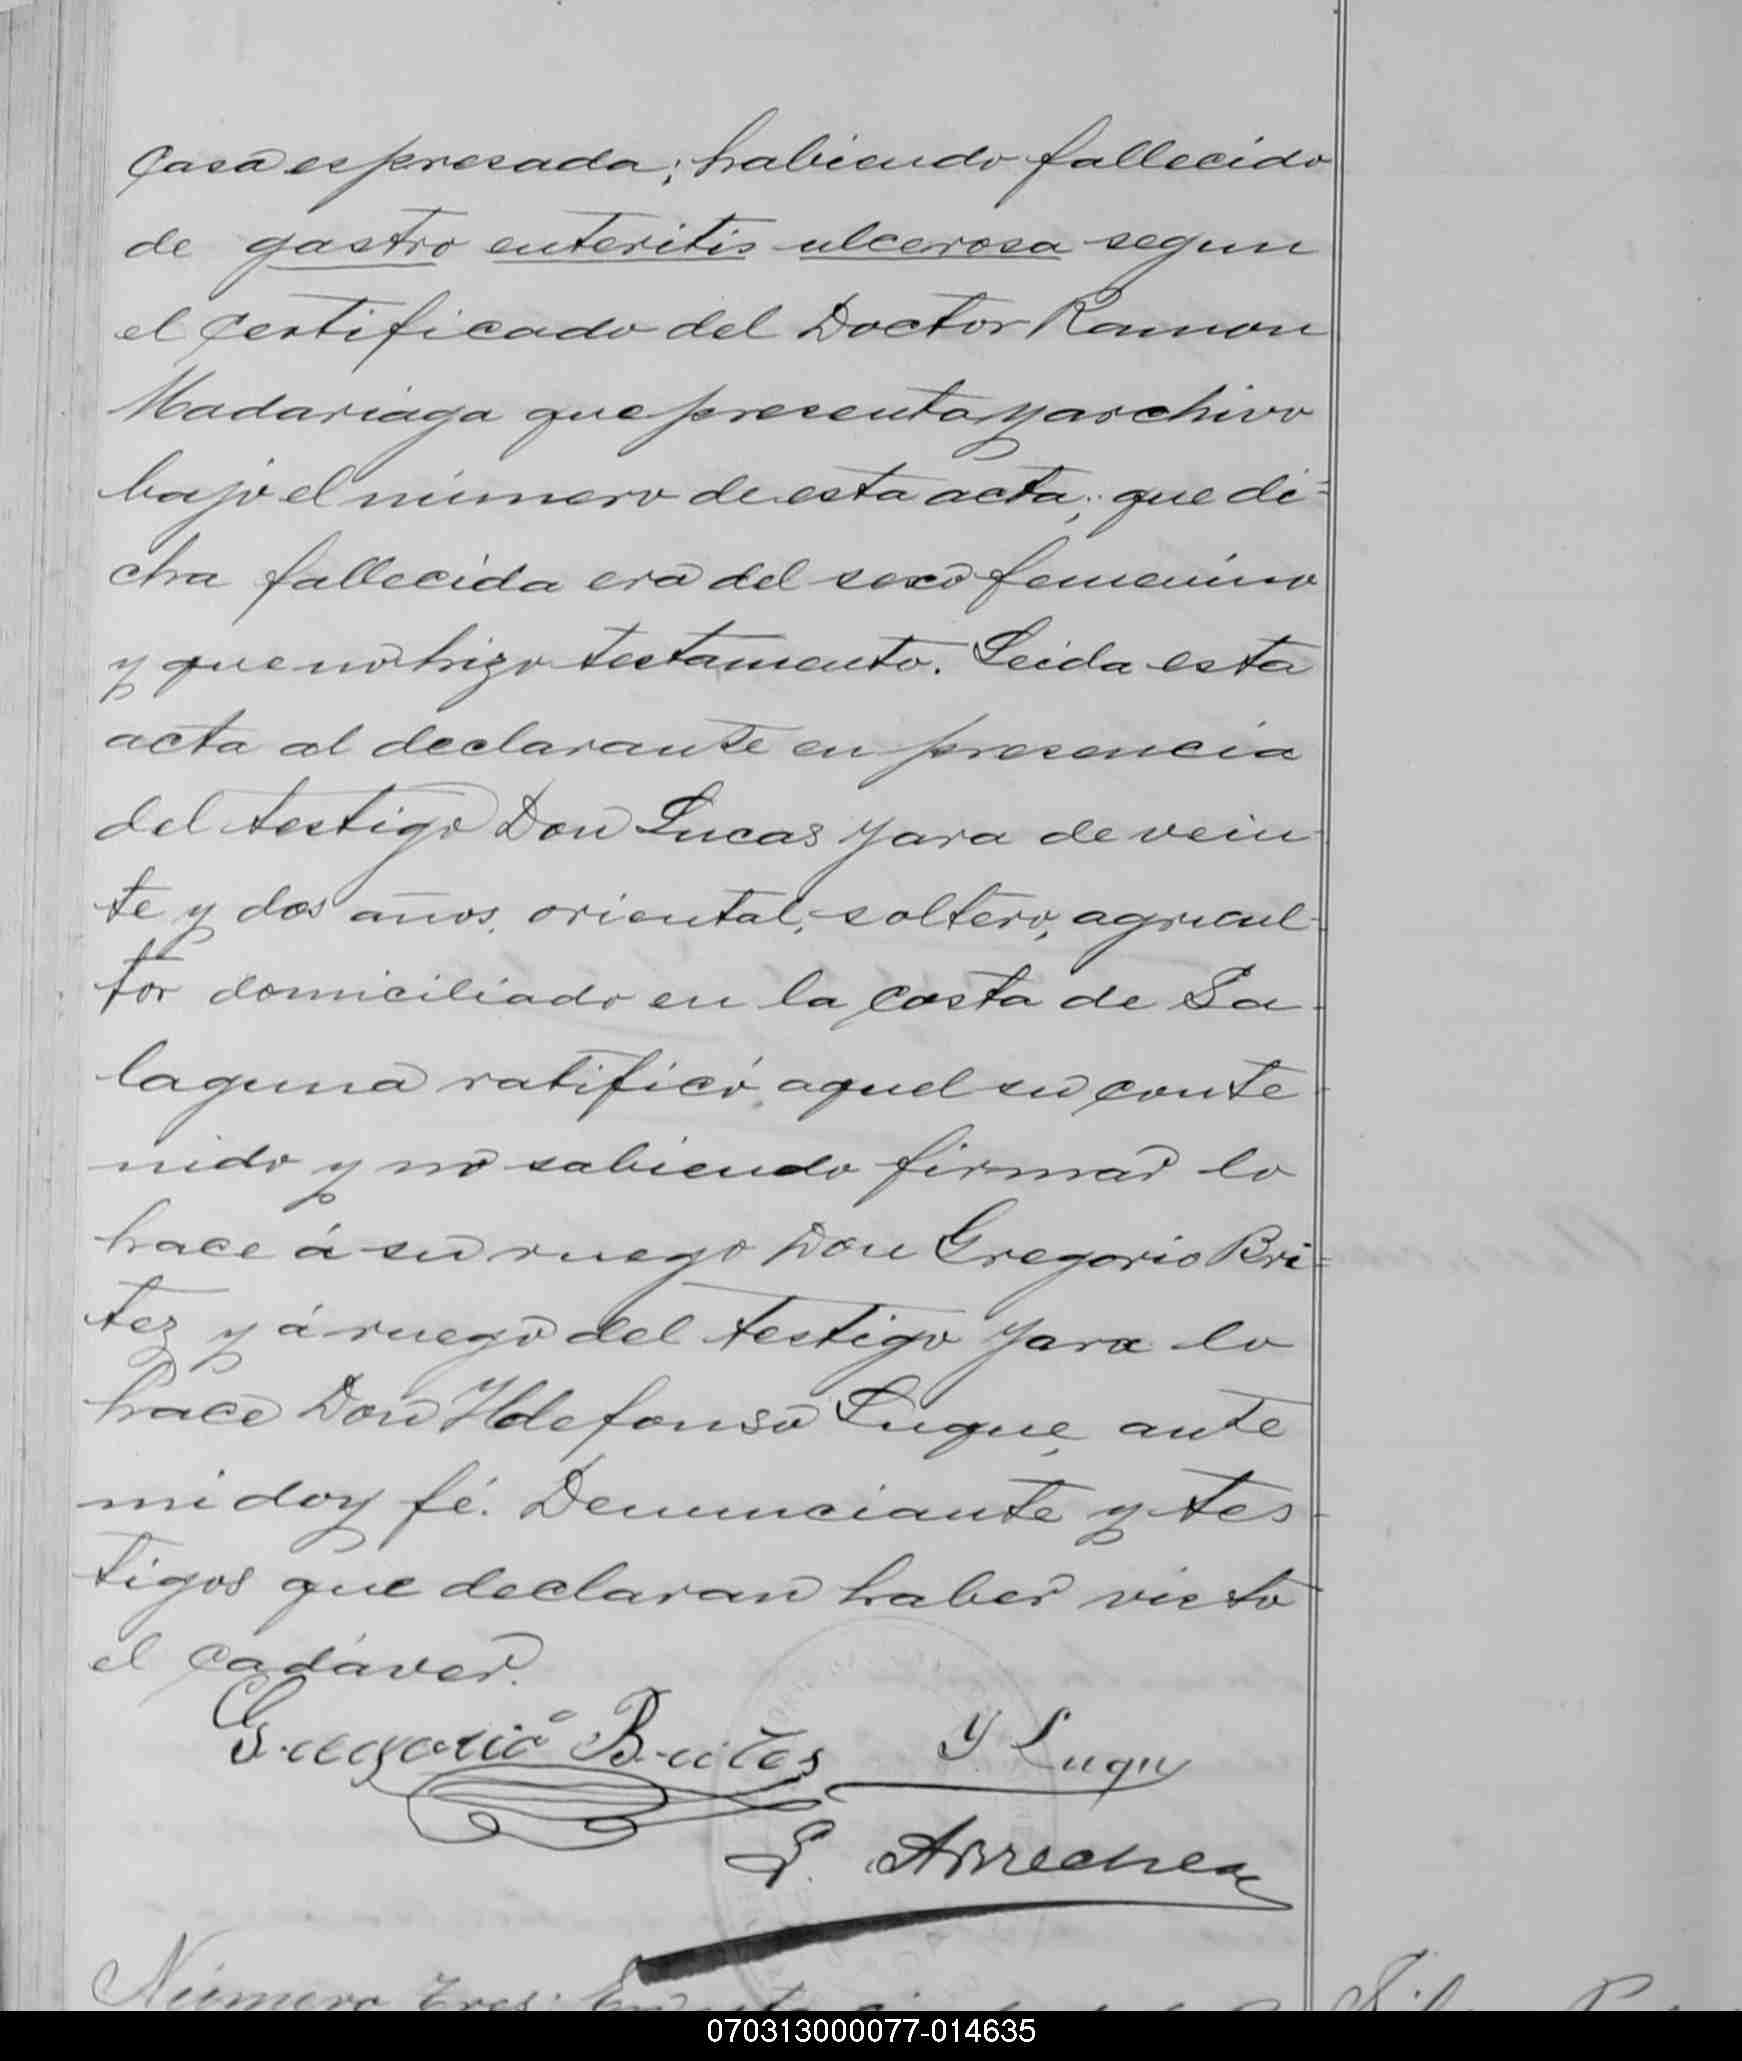 casa espresada; habiendo fallecido
de gastro enteritis ulcerosa segun
el certificado del Doctor Ramon
Madariaga que presenta y archivo
bajo el número de esta acta; que di=
cha fallecida era del sexo femenino
y que no hizo testamento. Leida esta
acta al declarante en presencia
del testigo Don Lucas Yara de vein-
te y dos años, oriental, soltero, agricul-
tor domiciliado en la costa de La-
laguna ratificó aquel su conte-
nido y no sabiendo firmar lo
hace á su ruego Don Gregorio Bri=
tez y á ruego del testigo Yara lo
hace Don Yldefonso Luque, ante
mi doy fé. Denunciante y tes-
tigos que declaran haber visto
el cadáver.
Gregorio Brites Y Luque
L. Arrechea
Número tres: En esta
070313000077-014635